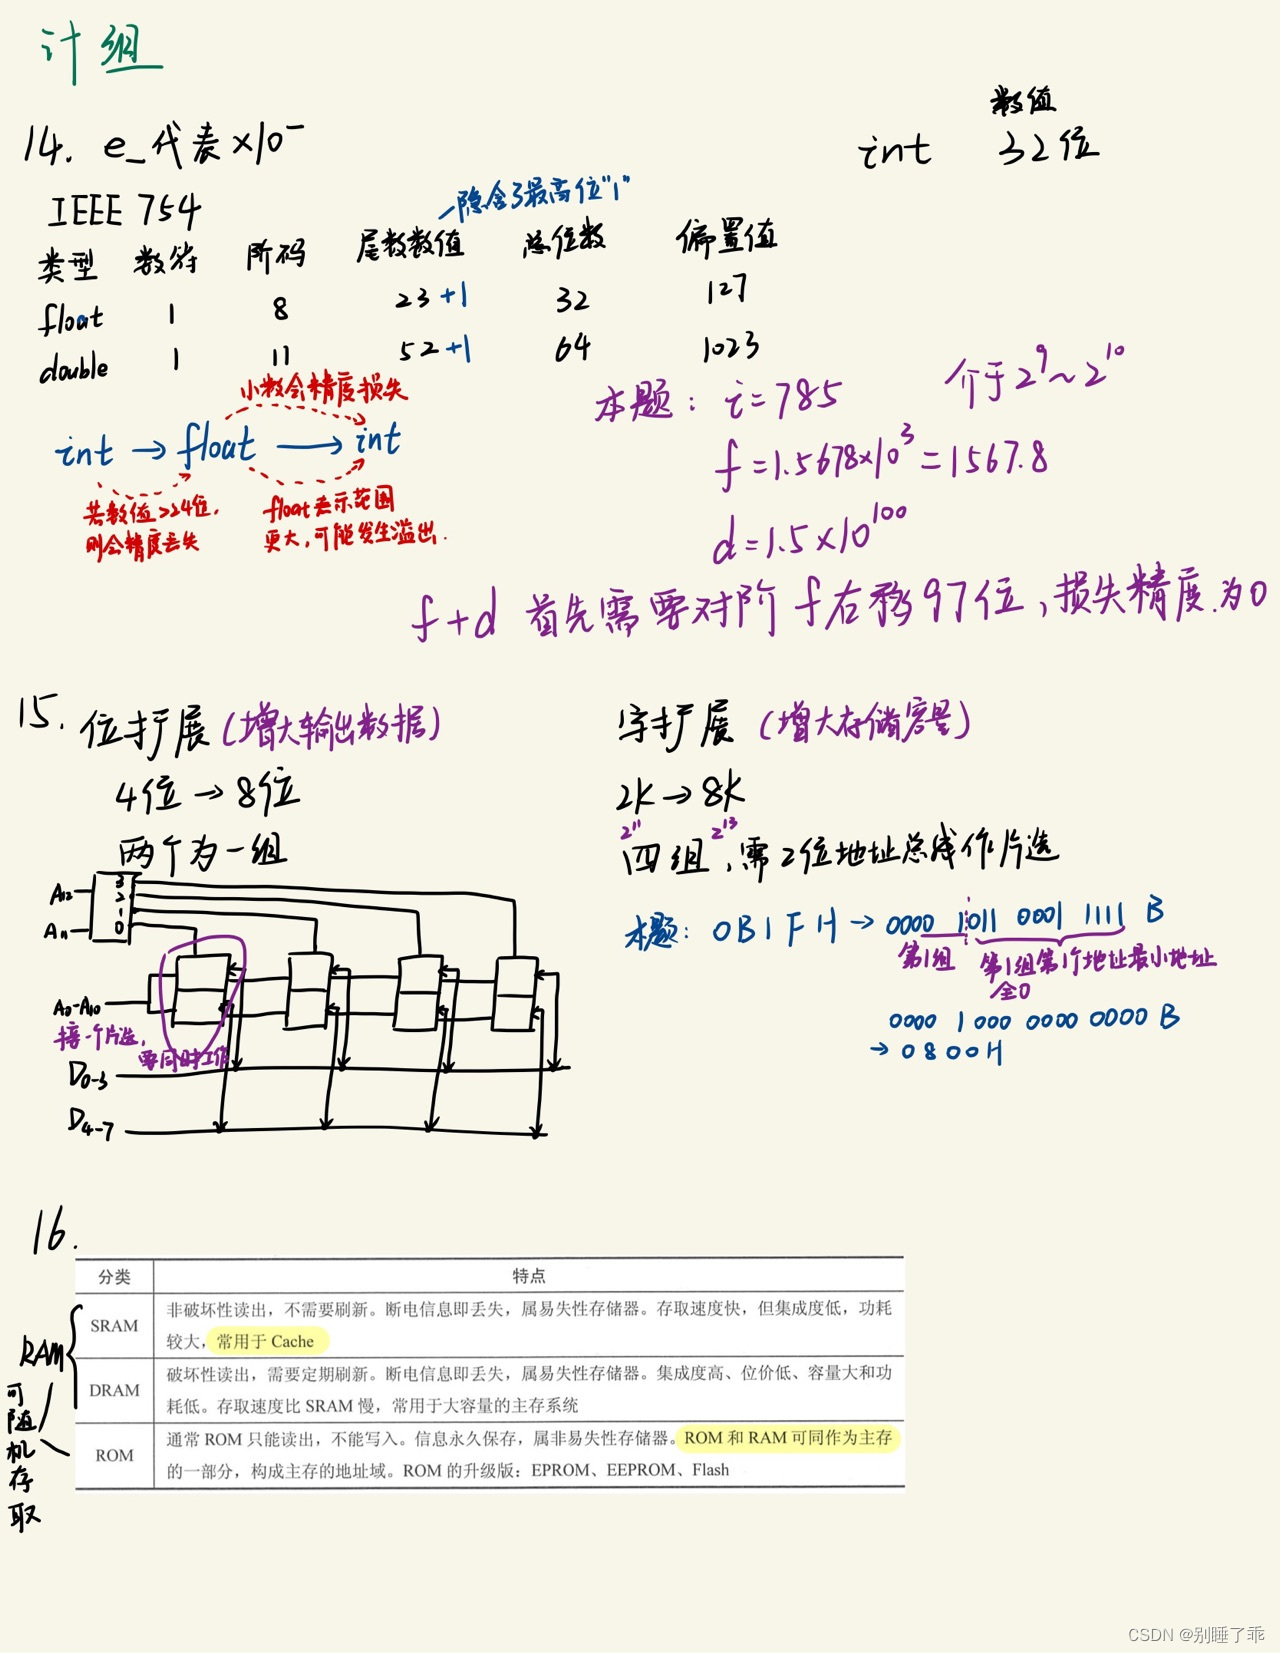 计组
14. e_代表×10⁻
数值
int 32位
IEEE 754
隐含了最高位"1"
类型 数符 阶码 尾数数值 总位数 偏置值
float 1 8 23+1 32 127
double 1 11 52+1 64 1023
小数会精度损失
int → float → int
若数值>24位,
则会精度丢失
float表示范围
更大,可能发生溢出.
本题: i=785 介于2⁹~2¹⁰
f=1.5678×10³=1567.8
d=1.5×10¹⁰⁰
f+d 首先需要对阶 f右移97位,损失精度.为0
15. 位扩展(增大输出数据)
4位→8位
两个为一组
A12
A11
3
2
1
0
A0-A10
接一个片选,
要同时工作
D0-3
D4-7
字扩展(增大存储容量)
2K→8K
2¹¹ 2¹³
四组,需2位地址总线作片选
本题: 0B1FH→0000 1011 0001 1111 B
第1组 第1组第1个地址最小地址
全0
0000 1000 0000 0000 B
→0800H
16.
分类 特点
SRAM 非破坏性读出，不需要刷新。断电信息即丢失，属易失性存储器。存取速度快，但集成度低，功耗
较大，常用于 Cache
DRAM 破坏性读出，需要定期刷新。断电信息即丢失，属易失性存储器。集成度高、位价低、容量大和功
耗低。存取速度比 SRAM 慢，常用于大容量的主存系统
ROM 通常 ROM 只能读出，不能写入。信息永久保存，属非易失性存储器。ROM 和 RAM 可同作为主存
的一部分，构成主存的地址域。ROM 的升级版：EPROM、EEPROM、Flash
RAM
可随机存取
CSDN @别睡了乖